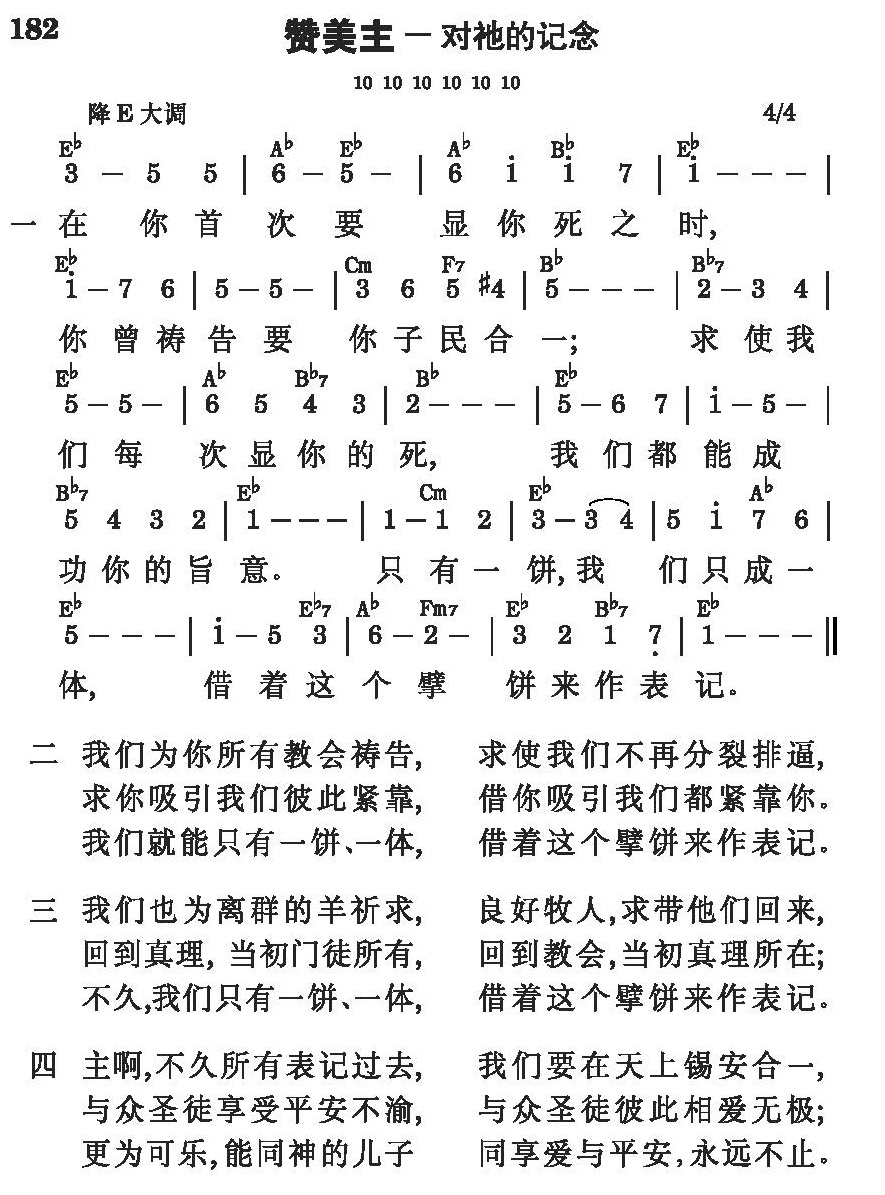 182
赞美主 — 对祂的记念
10 10 10 10 10 10
降 E 大调 4/4
E♭ A♭ E♭ A♭ B♭ E♭
3 — 5 5 | 6 — 5 — | 6 i̇ i̇ 7 | i̇ — — — |
一 在 你 首 次 要 显 你 死 之 时,
E♭ Cm F7 B♭ B♭7
i̇ — 7 6 | 5 — 5 — | 3 6 5 #4 | 5 — — — | 2 — 3 4 |
你 曾 祷 告 要 你 子 民 合 一; 求 使 我
E♭ A♭ B♭7 B♭ E♭
5 — 5 — | 6 5 4 3 | 2 — — — | 5 — 6 7 | i̇ — 5 — |
们 每 次 显 你 的 死, 我 们 都 能 成
B♭7 E♭ Cm E♭ A♭
5 4 3 2 | 1 — — — | 1 — 1 2 | 3 — 3 4 | 5 i̇ 7 6 |
功 你 的 旨 意。 只 有 一 饼, 我 们 只 成 一
E♭ E♭7 A♭ Fm7 E♭ B♭7 E♭
5 — — — | i̇ — 5 3 | 6 — 2 — | 3 2 1 7̣ | 1 — — — ‖
体, 借 着 这 个 擘 饼 来 作 表 记。
二 我们为你所有教会祷告, 求使我们不再分裂排逼,
求你吸引我们彼此紧靠, 借你吸引我们都紧靠你。
我们就能只有一饼、一体, 借着这个擘饼来作表记。
三 我们也为离群的羊祈求, 良好牧人,求带他们回来,
回到真理, 当初门徒所有, 回到教会,当初真理所在;
不久,我们只有一饼、一体, 借着这个擘饼来作表记。
四 主啊,不久所有表记过去, 我们要在天上锡安合一,
与众圣徒享受平安不渝, 与众圣徒彼此相爱无极;
更为可乐,能同神的儿子 同享爱与平安,永远不止。